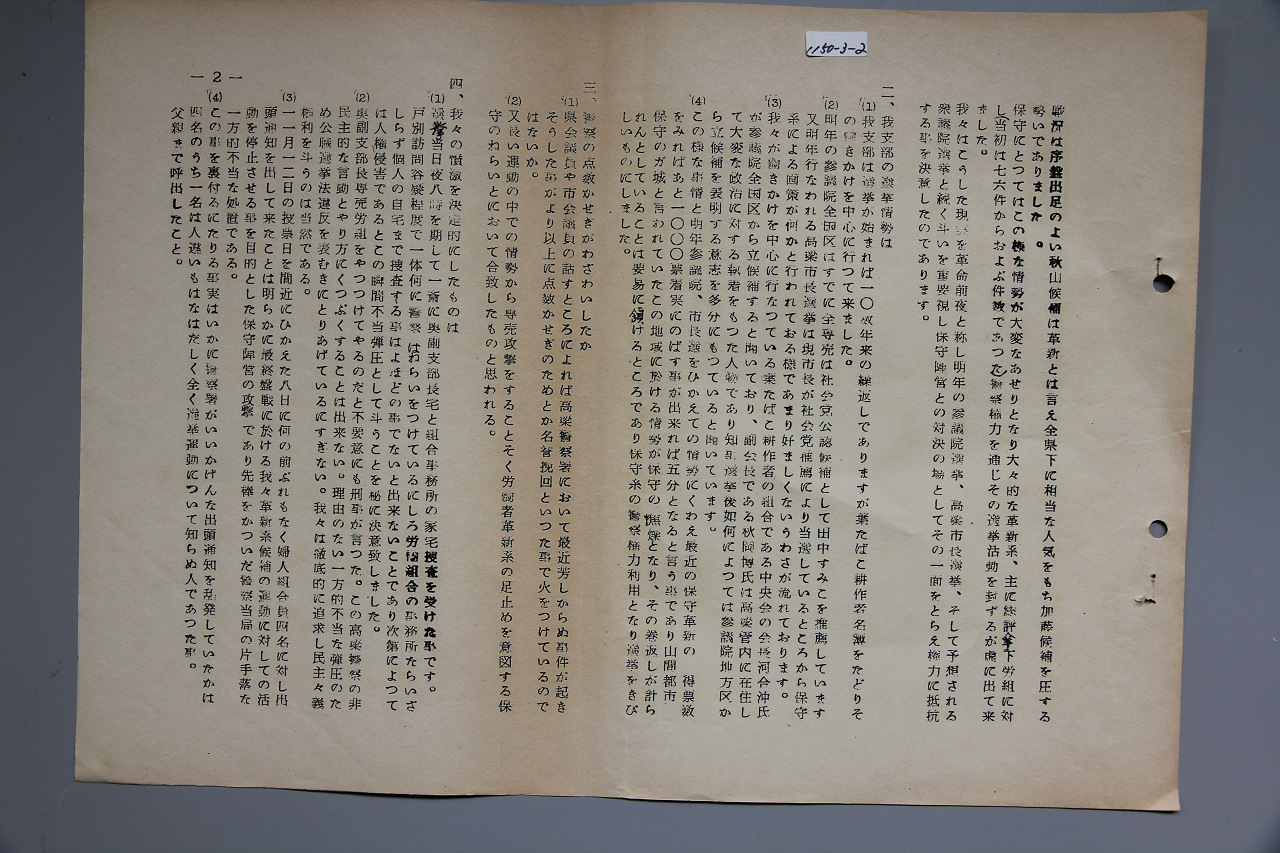 1150-3-2
戦況は序盤出足のよい秋山候補は革新とは言え全県下に相当な人気をもち加藤候補を圧する
勢いでありました。
保守にとつてはこの様な情勢が大変なあせりとなり大々的な革新系、主に総評傘下労組に対
し当初は七六件からおよぶ件数であつた警察権力を通じその選挙活動を封ずるが虚に出て来
ました。
我々はこうした現実を革命前夜と称し明年の参議院選挙、高梁市長選挙、そして予想される
衆議院選挙と続く斗いを重要視し保守陣営との対決の場としてその一面をとらえ権力に抵抗
する事を決意したのであります。
二、我支部の選挙情勢は
(1)我支部は選挙が始まれば一〇数年来の繰返しでありますが葉たばこ耕作者名簿をたどりそ
の働きかけを中心に行つて来ました。
(2)明年の参議院全国区はすでに全専売は社会党公認候補として田中すみこを推薦しています
又明年行なわれる高梁市長選挙は現市長が社会党推薦により当選しているところから保守
系による画策が何かと行われておる様であまり好ましくないうわさが流れております。
(3)我々が働きかけを中心に行なつている葉たばこ耕作者の組合である中央会の会長河合沖氏
が参議院全国区から立候補すると聞いており、副会長である秋岡博氏は高梁管内に在住し
て大変な政治に対する執着をもつた人物であり知事選挙後如何によつては参議院地方区か
ら立候補を表明する意志を多分にもつていると聞いています。
(4)この様な事情と明年参議院、市長選をひかえての情勢にくわえ最近の保守革新の 得票数
をみればあと一〇〇〇票着実にのばす事が出来れば五分となると言う事であり山間都市
保守のガ城と言われていたこの地域に於ける情勢が保守の 焦燥となり、その巻返しが計ら
れんとしていることは要易に頷けるところであり保守系の警察権力利用となり選挙をきび
しいものにしました。
三、警察の点数かせぎがわざわいしたか
(1)県会議員や市会議員の話すところによれば高梁警察署において最近芳しからぬ事件が起き
そうした事がより以上に点数かせぎのためとか名誉挽回といつた事で火をつけているので
はないか。
(2)又長い運動の中での情勢から専売攻撃をすることそく労働者革新系の足止めを意図する保
守のねらいとにおいて合致したものと思われる。
四、我々の憤激を決定的にしたものは
(1)選挙当日夜八時を期して一斎に奥副支部長宅と組合事務所の家宅捜査を受けた事です。
戸別訪問容疑程度で一体何に警察はねらいをつけているにしろ労働組合の事務所ならいさ
しらず個人の自宅まで捜査する事はよほどの事でないと出来ないことであり次第によつて
は人権侵害であるとこの瞬間不当弾圧として斗うことを秘に決意致しました。
(2)奥副支部長専売労組をやつつけてやるのだと不要意にも刑事が言つた。この高梁警察の非
民主的な言動とやり方にくつぷくすることは出来ない。理由のない一方的不当な弾圧のた
め公職選挙法違反を表むきにとりあげているにすぎない。我々は徹底的に追求し民主々義
権利を斗うのは当然である。
(3)一一月一二日の投票日を間近にひかえた八日に何の前ぶれもなく婦人組合員四名に対し出
頭通知を出して来たことは明らかに最終盤戦に於ける我々革新系候補の運動に対しての活
動を停止させる事を目的とした保守陣営の攻撃であり先棒をかついだ警察当局の片手落な
一方的不当な処置である。
(4)この事を裏付るにたりる事実はいかに警察署がいいかげんな出頭通知を乱発していたかは
四名のうち一名は人違いもはなはだしく全く選挙運動について知らぬ人であつた事。
父親まで呼出したこと。
－2－